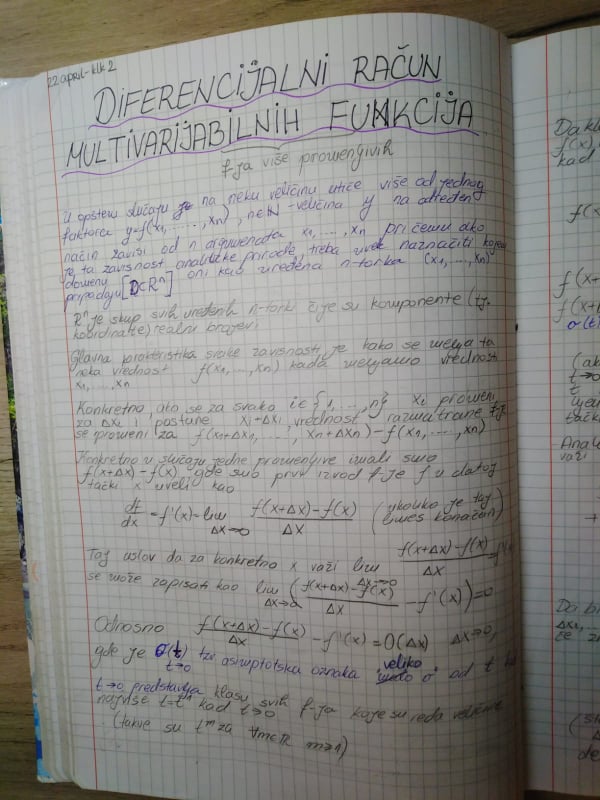 22. april - klk 2
DIFERENCIJALNI RAČUN
MULTIVARIJABILNIH FUNKCIJA
f-ja više promenjivih
U opštem slučaju je na neku veličinu utiče više od jednog
faktora y=f(x₁,...,xₙ), n∈ℕ - veličina y na određen
način zavisi od n argumenata x₁,...,xₙ pri čemu ako
je ta zavisnost analitičke prirode, treba uvek naznačiti kojem
domenu [D⊂ℝⁿ] oni kao uređena n-torka (x₁,...,xₙ)
pripadaju
ℝⁿ je skup svih uređenih n-torki čije su komponente (tj.
koordinate) realni brojevi
Glavna karakteristika svake zavisnosti je kako se menja ta
neka vrednost f(x₁,...,xₙ) kada menjamo vrednosti
x₁,...,xₙ
Konkretno, ako se za svako i∈{1,...,n} xᵢ promeni
za Δxᵢ i postane xᵢ+Δxᵢ, vrednost razmatrane f-je
se promeni za f(x₁+Δx₁,...,xₙ+Δxₙ)-f(x₁,...,xₙ)
Konkretno u slučaju jedne promenjive imali smo
f(x+Δx)-f(x) gde smo prvi izvod f-je f u datoj
tački x uveli kao
df/dx = f'(x) = lim Δx→0 (f(x+Δx)-f(x))/Δx (ukoliko je taj limes konačan)
Taj uslov da za konkretno x važi lim Δx→0 (f(x+Δx)-f(x))/Δx = f'(x)
se može zapisati kao lim Δx→0 ((f(x+Δx)-f(x))/Δx - f'(x))=0
Odnosno (f(x+Δx)-f(x))/Δx - f'(x)=O(Δx) Δx→0,
gde je O(t) t→0 tzv asimptotska oznaka veliko O od t kad
t→0 predstavlja klasu svih f-ja koje su reda veličine
najviše t=t¹ kad t→0
(takve su tᵐ za ∀m∈ℝ m≥1)
Dakle
f(x)
kad
f(x
f(x
f(x+
O(t)
(ak
t→0
t
tački
Anal
važi
Da bi
Δx₁,